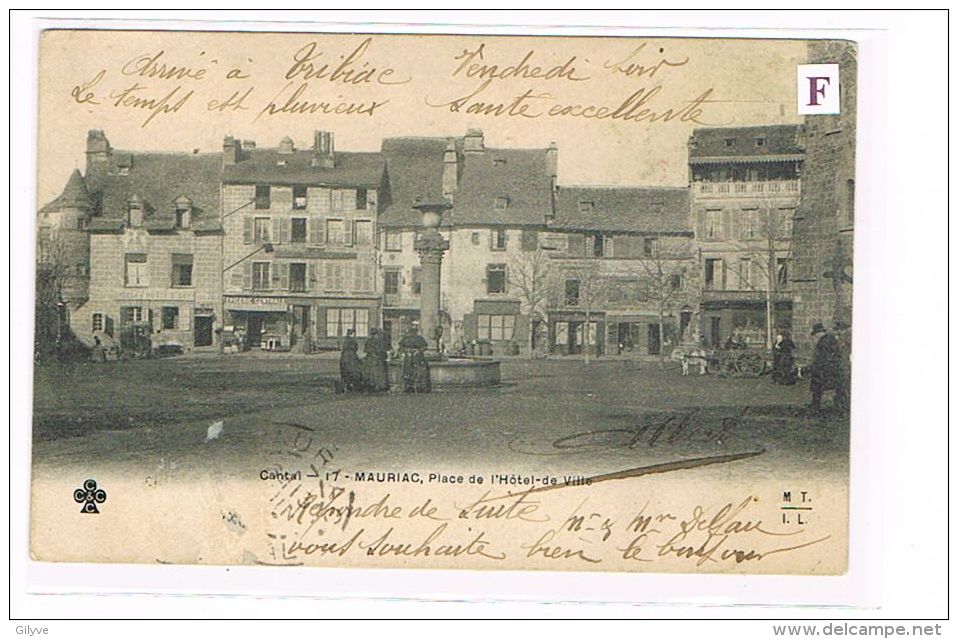 Arrivé à Tribiac Vendredi soir
Le temps est pluvieux Santé excellente
F
EPICERIE CENTRALE
Albert
Cantal - 17 - MAURIAC, Place de l'Hôtel-de Ville
C C C C
M T.
I L.
Répondre de suite Mme & Mr
vous souhaite bien le bonjour
Gilyve
www.delcampe.net